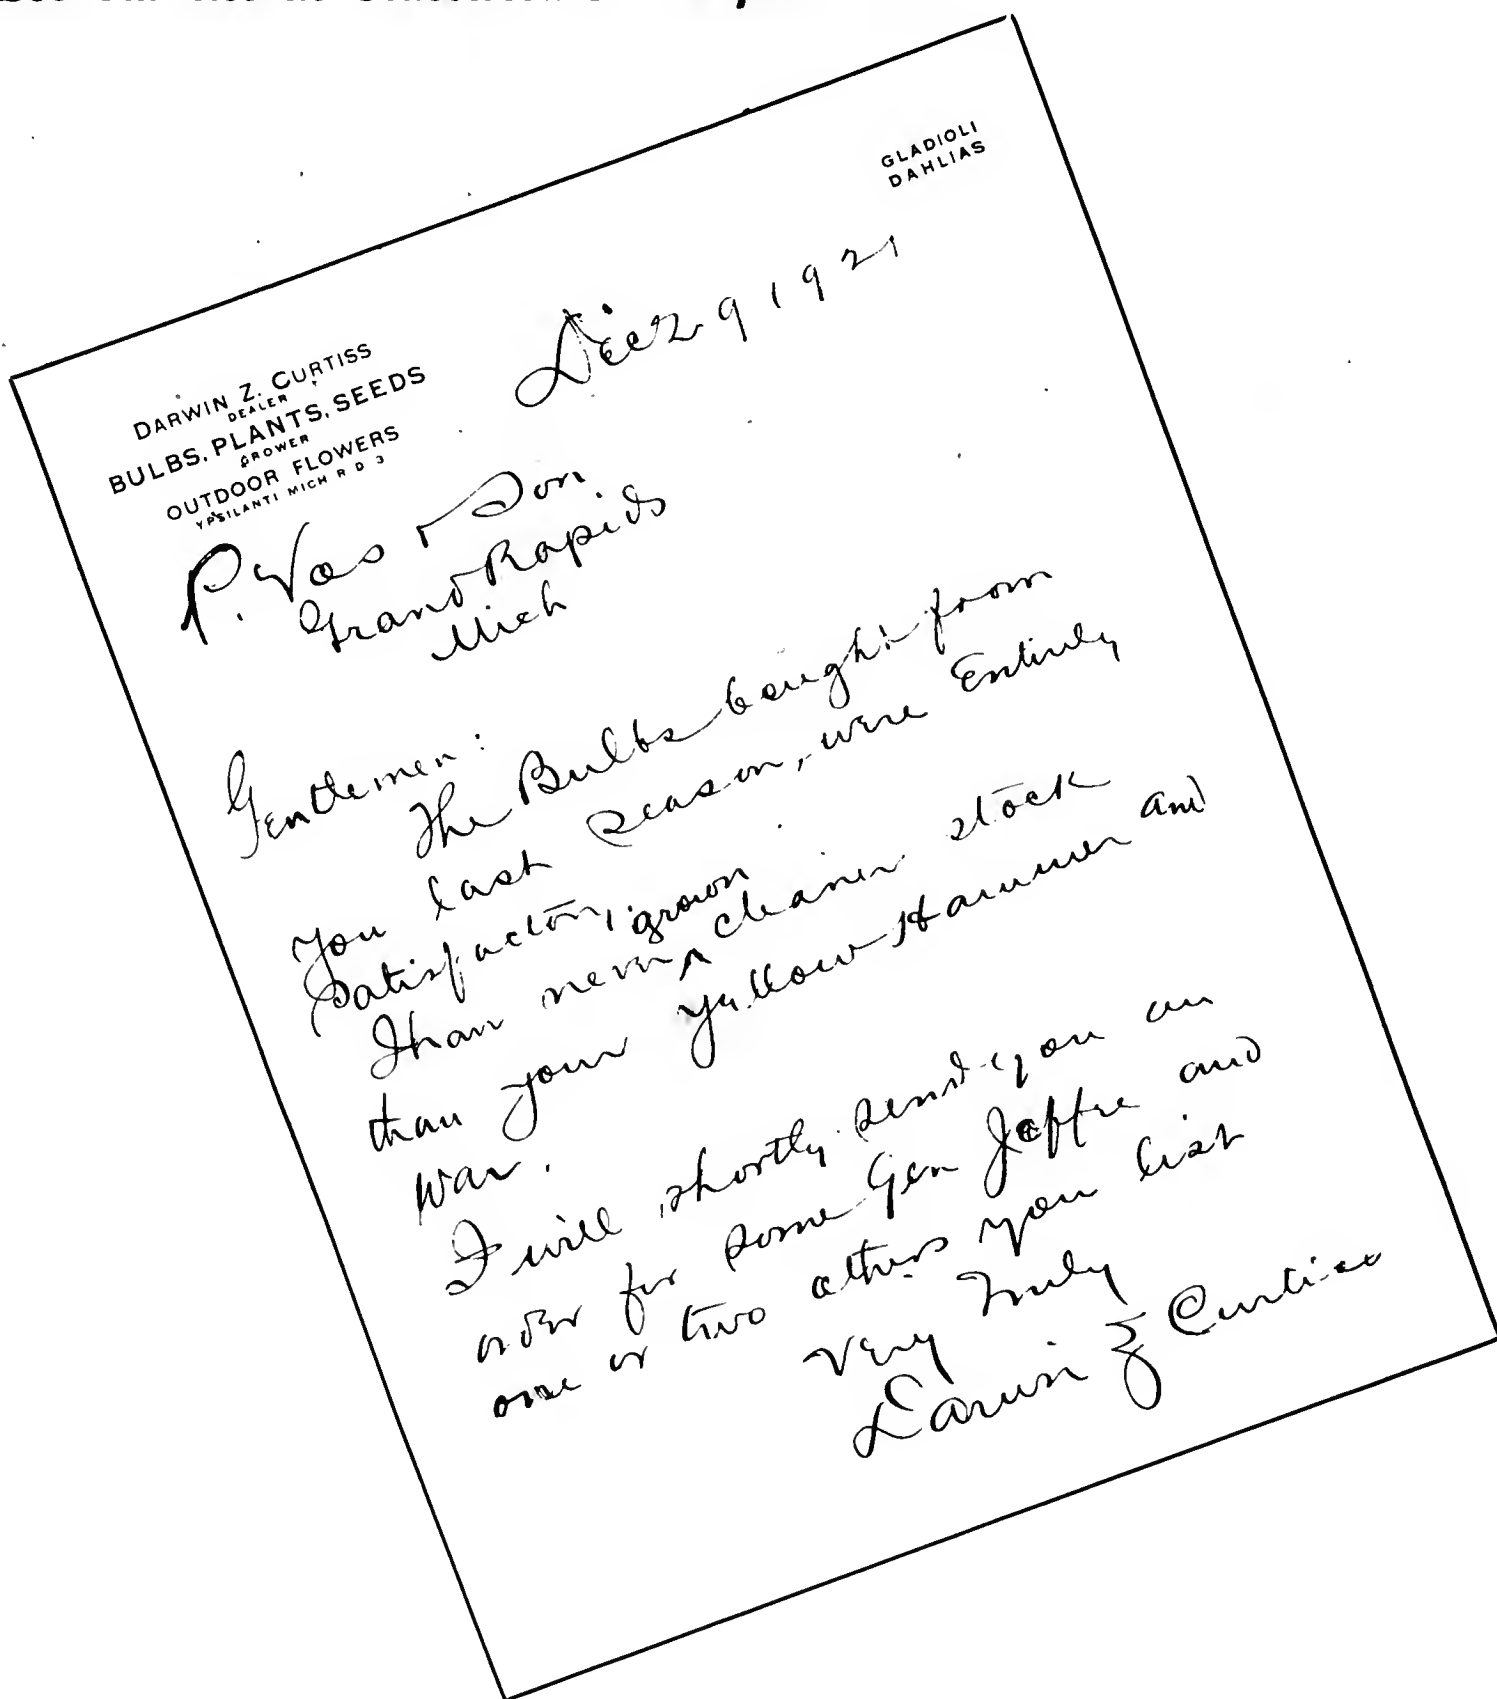 GLADIOLI
DAHLIAS
DARWIN Z. CURTISS
DEALER
BULBS, PLANTS, SEEDS
GROWER
OUTDOOR FLOWERS
YPSILANTI MICH R D 3
Dec 29 1921
P. Vos & Son
Grand Rapids
Mich
Gentlemen:
The Bulbs bought from
you last season, were Entirely
Satisfactory.
I have never grown cleaner stock
than your Yellow Hammer and
War.
I will shortly send you an
order for some Gen Joffre and
one or two others you list
Very Truly
Darwin Z Curtiss